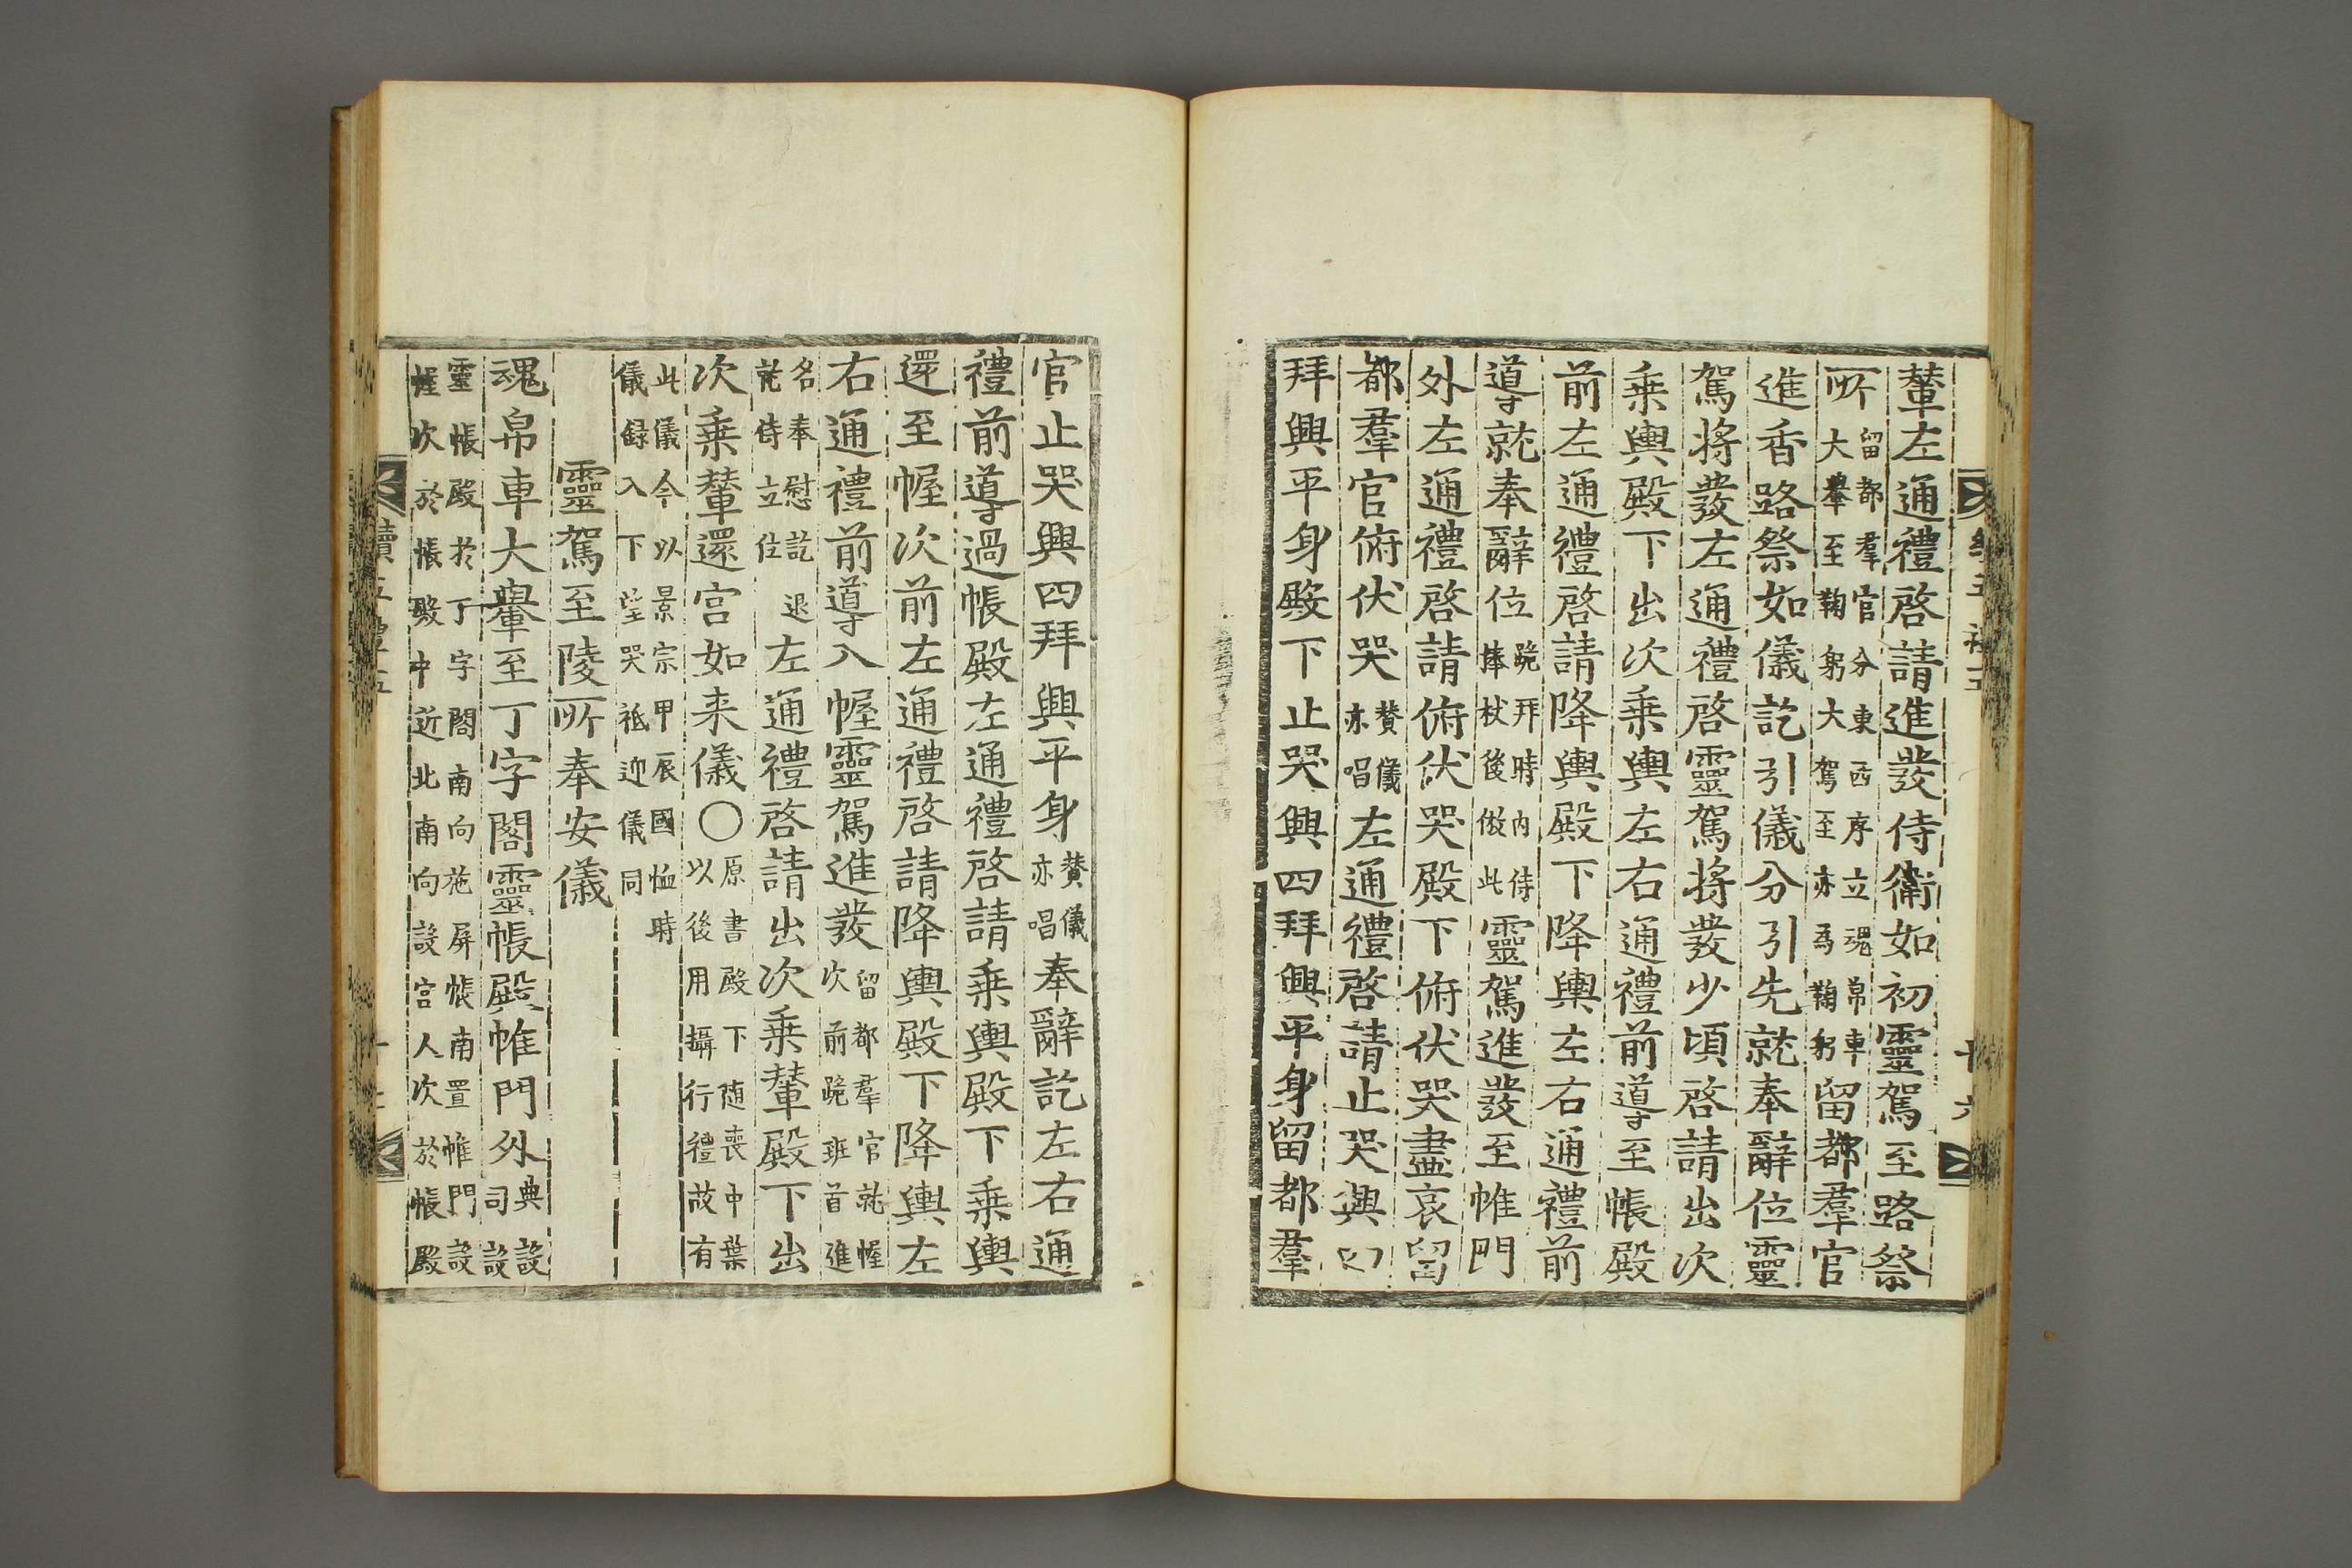 輦左通禮啓請進發侍衛如初靈駕至路祭
所留都羣官分東西序立魂帛車大轝至鞠躬大駕至亦爲鞠躬留都羣官
進香路祭如儀訖引儀分引先就奉辭位靈
駕將發左通禮啓靈駕將發少頃啓請出次
乗輿殿下出次乗輿左右通禮前導至帳殿
前左通禮啓請降輿殿下降輿左右通禮前
導就奉辭位跪拜時內侍捧杖後倣此靈駕進發至帷門
外左通禮啓請俯伏哭殿下俯伏哭盡哀留
都羣官俯伏哭賛儀亦唱左通禮啓請止哭興四
拜興平身殿下止哭興四拜興平身留都羣
官止哭興四拜興平身賛儀亦唱奉辭訖左右通
禮前導過帳殿左通禮啓請乗輿殿下乗輿
還至幄次前左通禮啓請降輿殿下降輿左
右通禮前導入幄靈駕進發留都羣官就幄次前跪班首進
名奉慰訖退訖侍立位左通禮啓請出次乗輦殿下出
次乗輦還宮如来儀○原書殿下随喪中葉以後用攝行禮故有
此儀今以景宗甲辰國恤時儀録入下望哭祗迎儀同
靈駕至陵所奉安儀
魂帛車大轝至丁字閣靈帳殿帷門外典設司設
靈帳殿於丁字閣南向施屏帳南置帷門設幄次於帳殿中近北南向設宮人次於帳殿
續五禮五